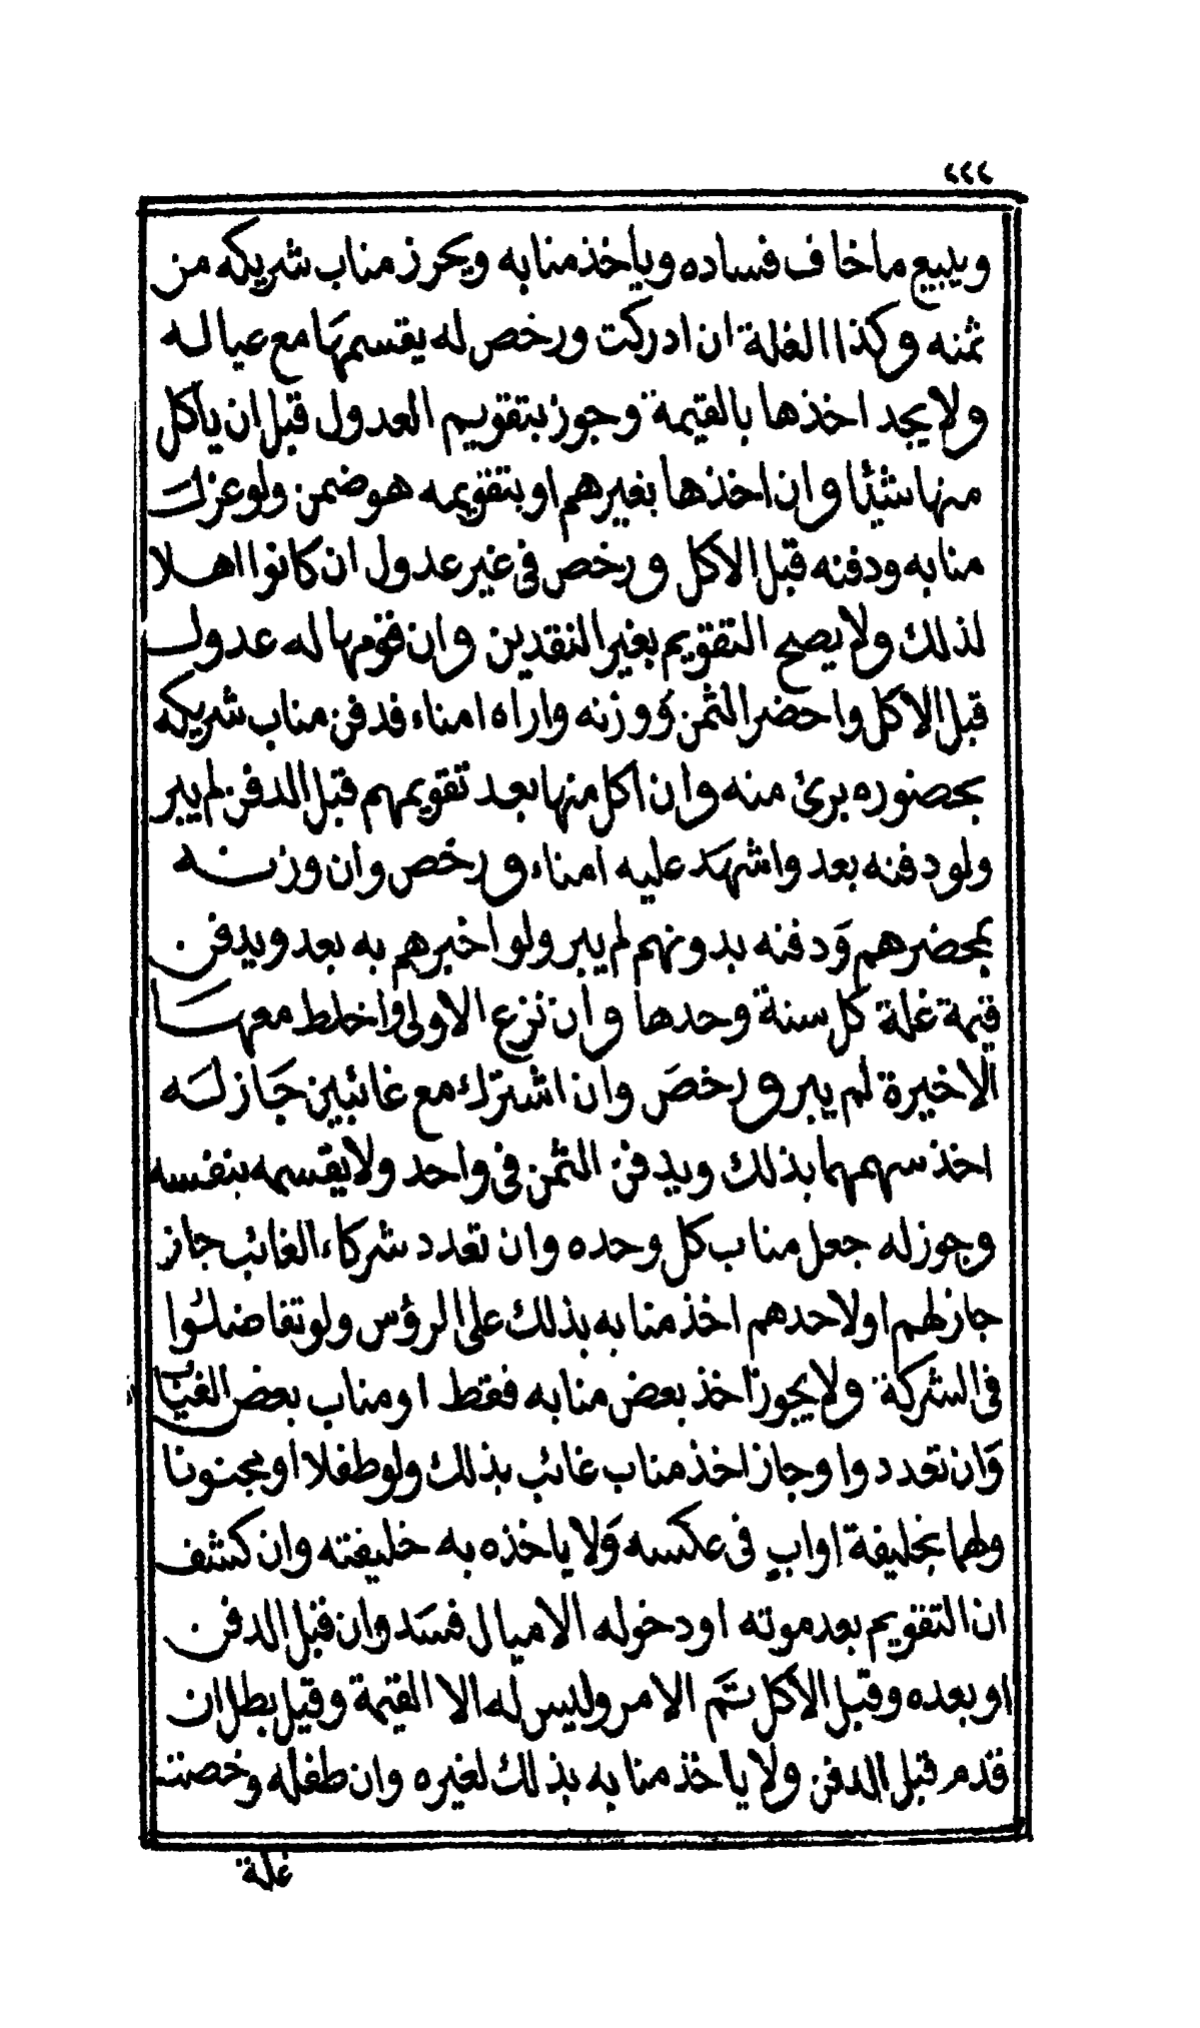 ٢٢٢
ويبيع ما خاف فساده وياخذ منابه ويحرز مناب شريكه من
ثمنه وكذا الغلة ان ادركت ورخص له يقسمها مع عياله
ولا يجد اخذها بالقيمة وجوز بتقويم العدول قبل ان ياكل
منها شيئا وان اخذها بغيرهم او بتقويمه هو ضمن ولو عزل
منابه ودفنه قبل الاكل ورخص في غير عدول ان كانوا اهلا
لذلك ولا يصح التقويم بغير النقدين وان قومها له عدول
قبل الاكل واحضر الثمن ووزنه واراه امناء فدفن مناب شريكه
بحضوره برئ منه وان اكل منها بعد تقويمهم قبل الدفن لم يبر
ولو دفنه بعد واشهد عليه امناء ورخص وان وزنه
بمحضرهم ودفنه بدونهم لم يبر ولو اخبرهم به بعد ويدفن
قيمة غلة كل سنة وحدها وان نزع الاولى واخلط معها
الاخيرة لم يبر ورخص وان اشترك مع غائبين جاز له
اخذ سهمهما بذلك ويدفن الثمن في واحد ولا يقسمه بنفسه
وجوز له جعل مناب كل وحده وان تعدد شركاء الغائب جاز
جاز لهم او لاحدهم اخذ منابه بذلك على الرؤس ولو تفاضلوا
في الشركة ولا يجوز اخذ بعض منابه فقط او مناب بعض الغياب
وان تعددوا وجاز اخذ مناب غائب بذلك ولو طفلا او مجنونا
ولهما بخليفة او اب في عكسه ولا ياخذه به خليفته وان كشف
ان التقويم بعد موته او دخوله الاميال فسد وان قبل الدفن
او بعده وقبل الاكل تم الامر وليس له الا القيمة وقيل بطل ان
قدم قبل الدفن ولا ياخذ منابه بذلك لغيره وان طفله وخصت
غلة